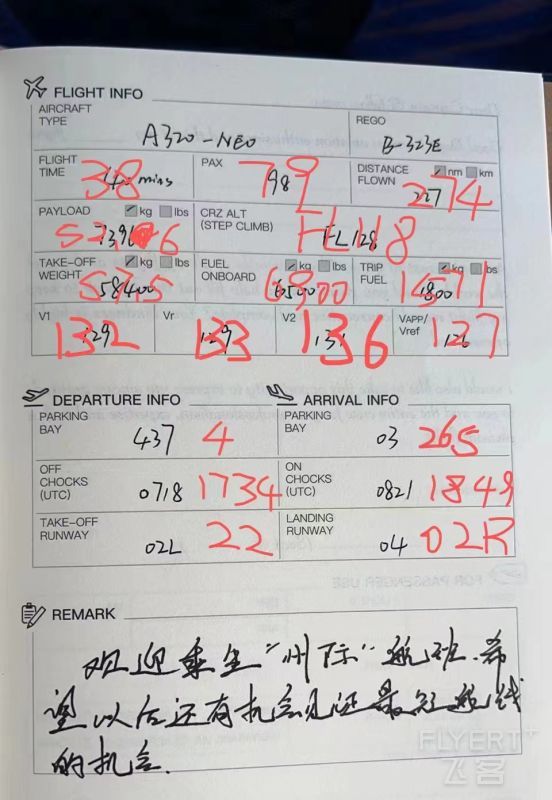 FLIGHT INFO
AIRCRAFT TYPE A320-NEO REGO B-323E
FLIGHT TIME 38 mins PAX 98 79 DISTANCE FLOWN nm km 227 274
PAYLOAD kg lbs CRZ ALT (STEP CLIMB) FL128 FL118
TAKE-OFF WEIGHT kg lbs 58400 FUEL ONBOARD kg lbs 6500 TRIP FUEL kg lbs 1800 1471
V1 129 132 Vr 129 133 V2 136 VAPP/Vref 126 127
DEPARTURE INFO ARRIVAL INFO
PARKING BAY 437 4 PARKING BAY 03 265
OFF CHOCKS (UTC) 0718 1734 ON CHOCKS (UTC) 0821 1849
TAKE-OFF RUNWAY 02L 22 LANDING RUNWAY 04 02R
REMARK
欢迎乘坐"州际"航班.希
望以后还有机会见证最短航线
的机会.
FLYERT+
飞客